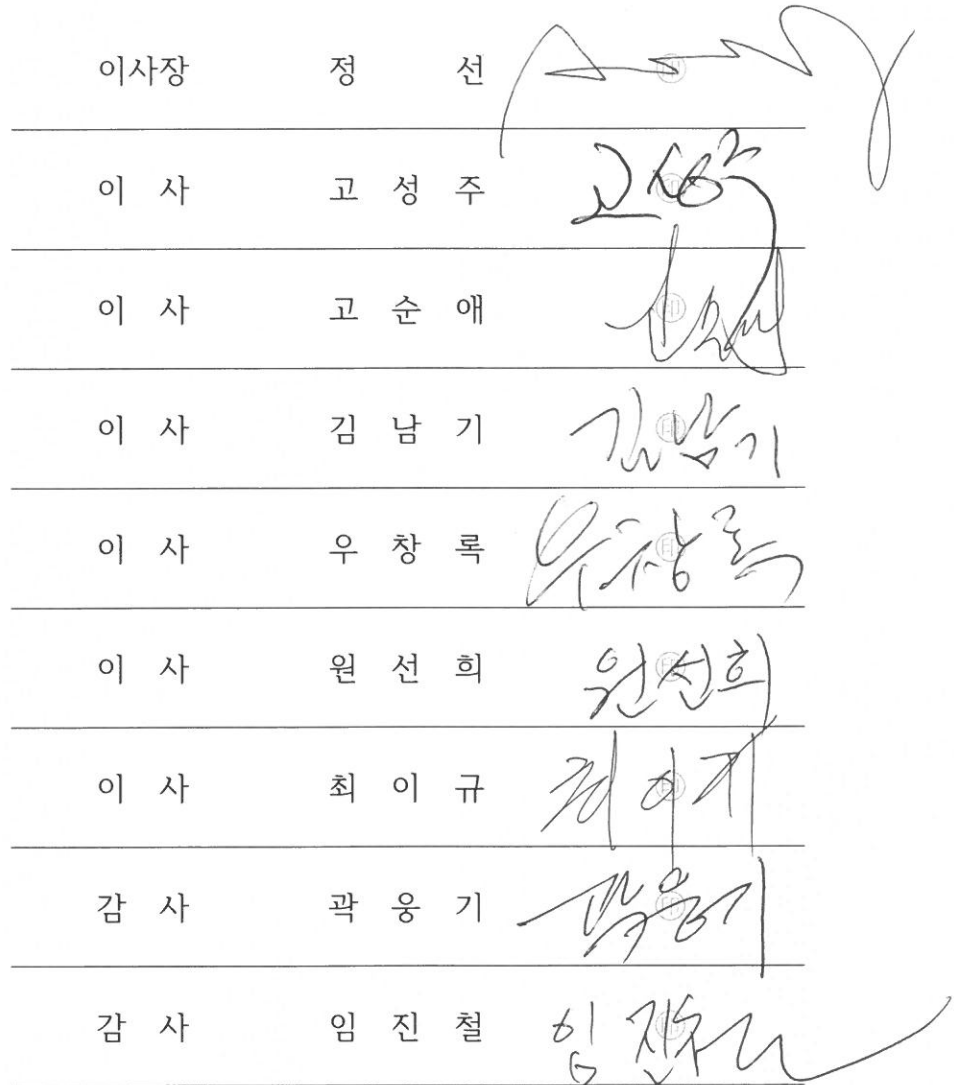 이사장 정 선 ㊞
이 사 고 성 주 고성주 ㊞
이 사 고 순 애 ㊞
이 사 김 남 기 김남기 ㊞
이 사 우 창 록 우창록 ㊞
이 사 원 선 희 원선희 ㊞
이 사 최 이 규 ㊞
감 사 곽 웅 기 곽웅기 ㊞
감 사 임 진 철 임진철 ㊞